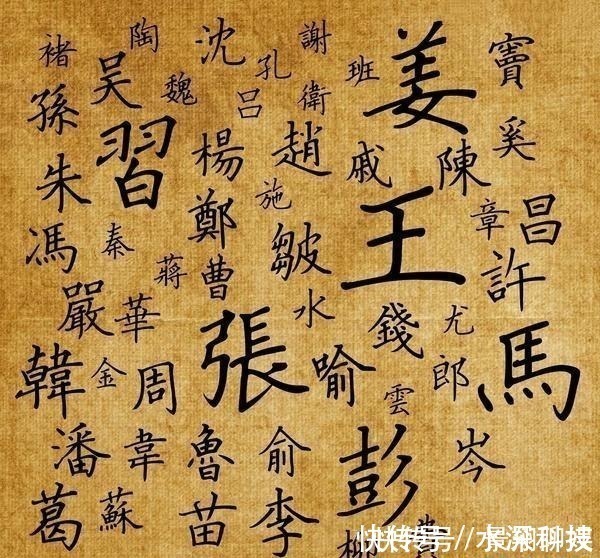 陶
沈
謝
褚
吳
魏
孔
班
姜
竇
孫
呂
衛
習
楊
趙
戚
陳
奚
朱
施
鄭
王
章
昌
馮
秦
蔣
曹
皺
許
嚴
華
水
錢
尤
張
馬
韓
金
周
喻
雲
郎
潘
韋
魯
俞
彭
岑
葛
蘇
苗
李
快传号